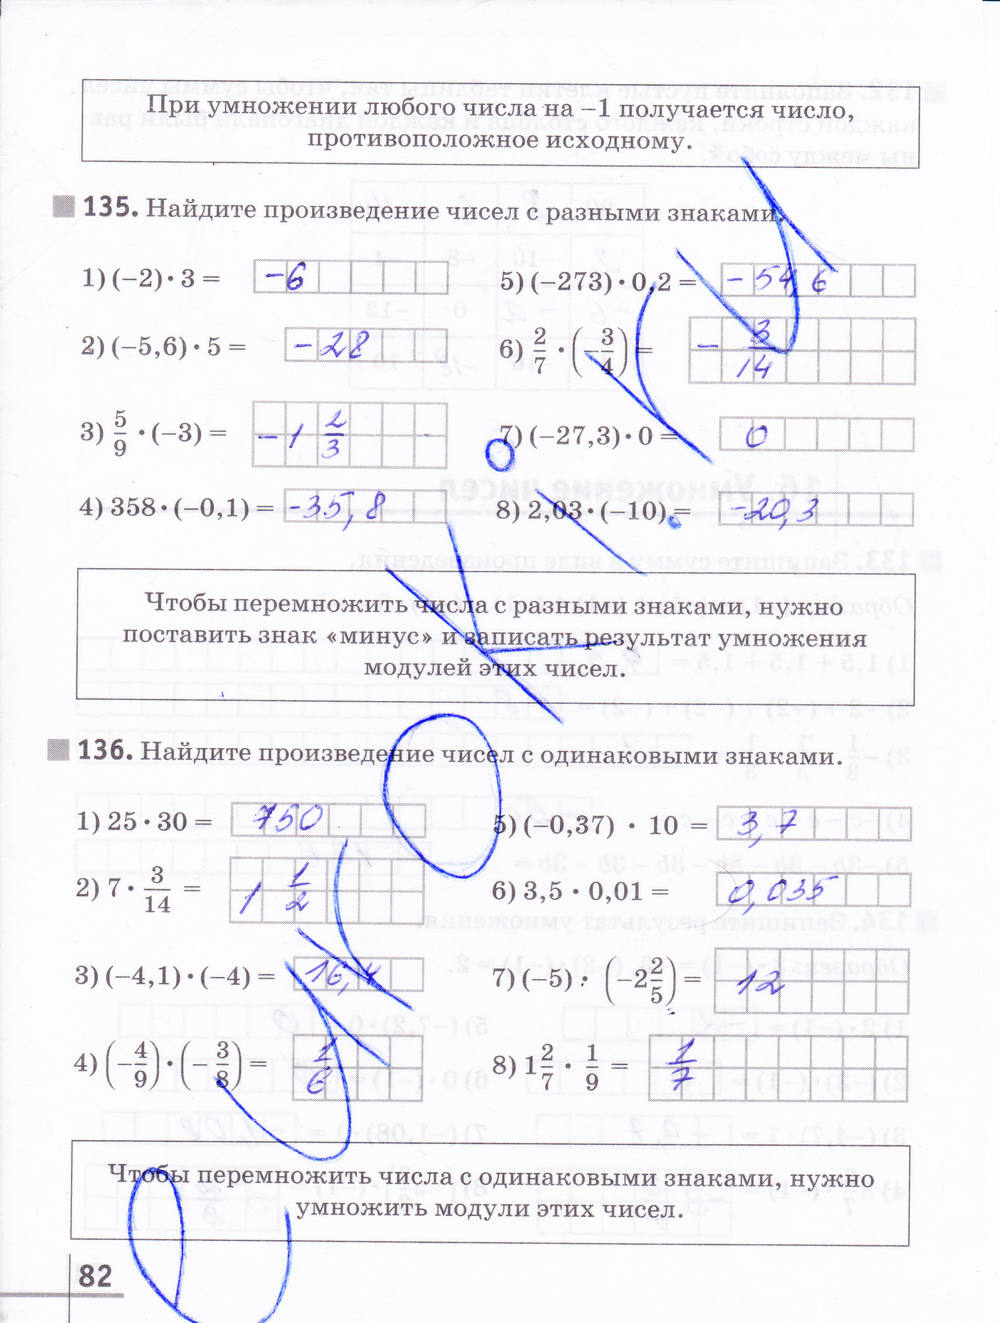 При умножении любого числа на –1 получается число,
противоположное исходному.
135. Найдите произведение чисел с разными знаками.
1) (–2) · 3 = –6
5) (–273) · 0,2 = –54,6
2) (–5,6) · 5 = –28
6) 2/7 · (–3/4) = –3/14
3) 5/9 · (–3) = –1 2/3
7) (–27,3) · 0 = 0
4) 358 · (–0,1) = –35,8
8) 2,03 · (–10) = –20,3
Чтобы перемножить числа с разными знаками, нужно
поставить знак «минус» и записать результат умножения
модулей этих чисел.
136. Найдите произведение чисел с одинаковыми знаками.
1) 25 · 30 = 750
5) (–0,37) · 10 = 3,7
2) 7 · 3/14 = 1 1/2
6) 3,5 · 0,01 = 0,035
3) (–4,1) · (–4) = 16,4
7) (–5) : (–2 2/5) = 12
4) (–4/9) · (–3/8) = 1/6
8) 1 2/7 · 1/9 = 1/7
Чтобы перемножить числа с одинаковыми знаками, нужно
умножить модули этих чисел.
82